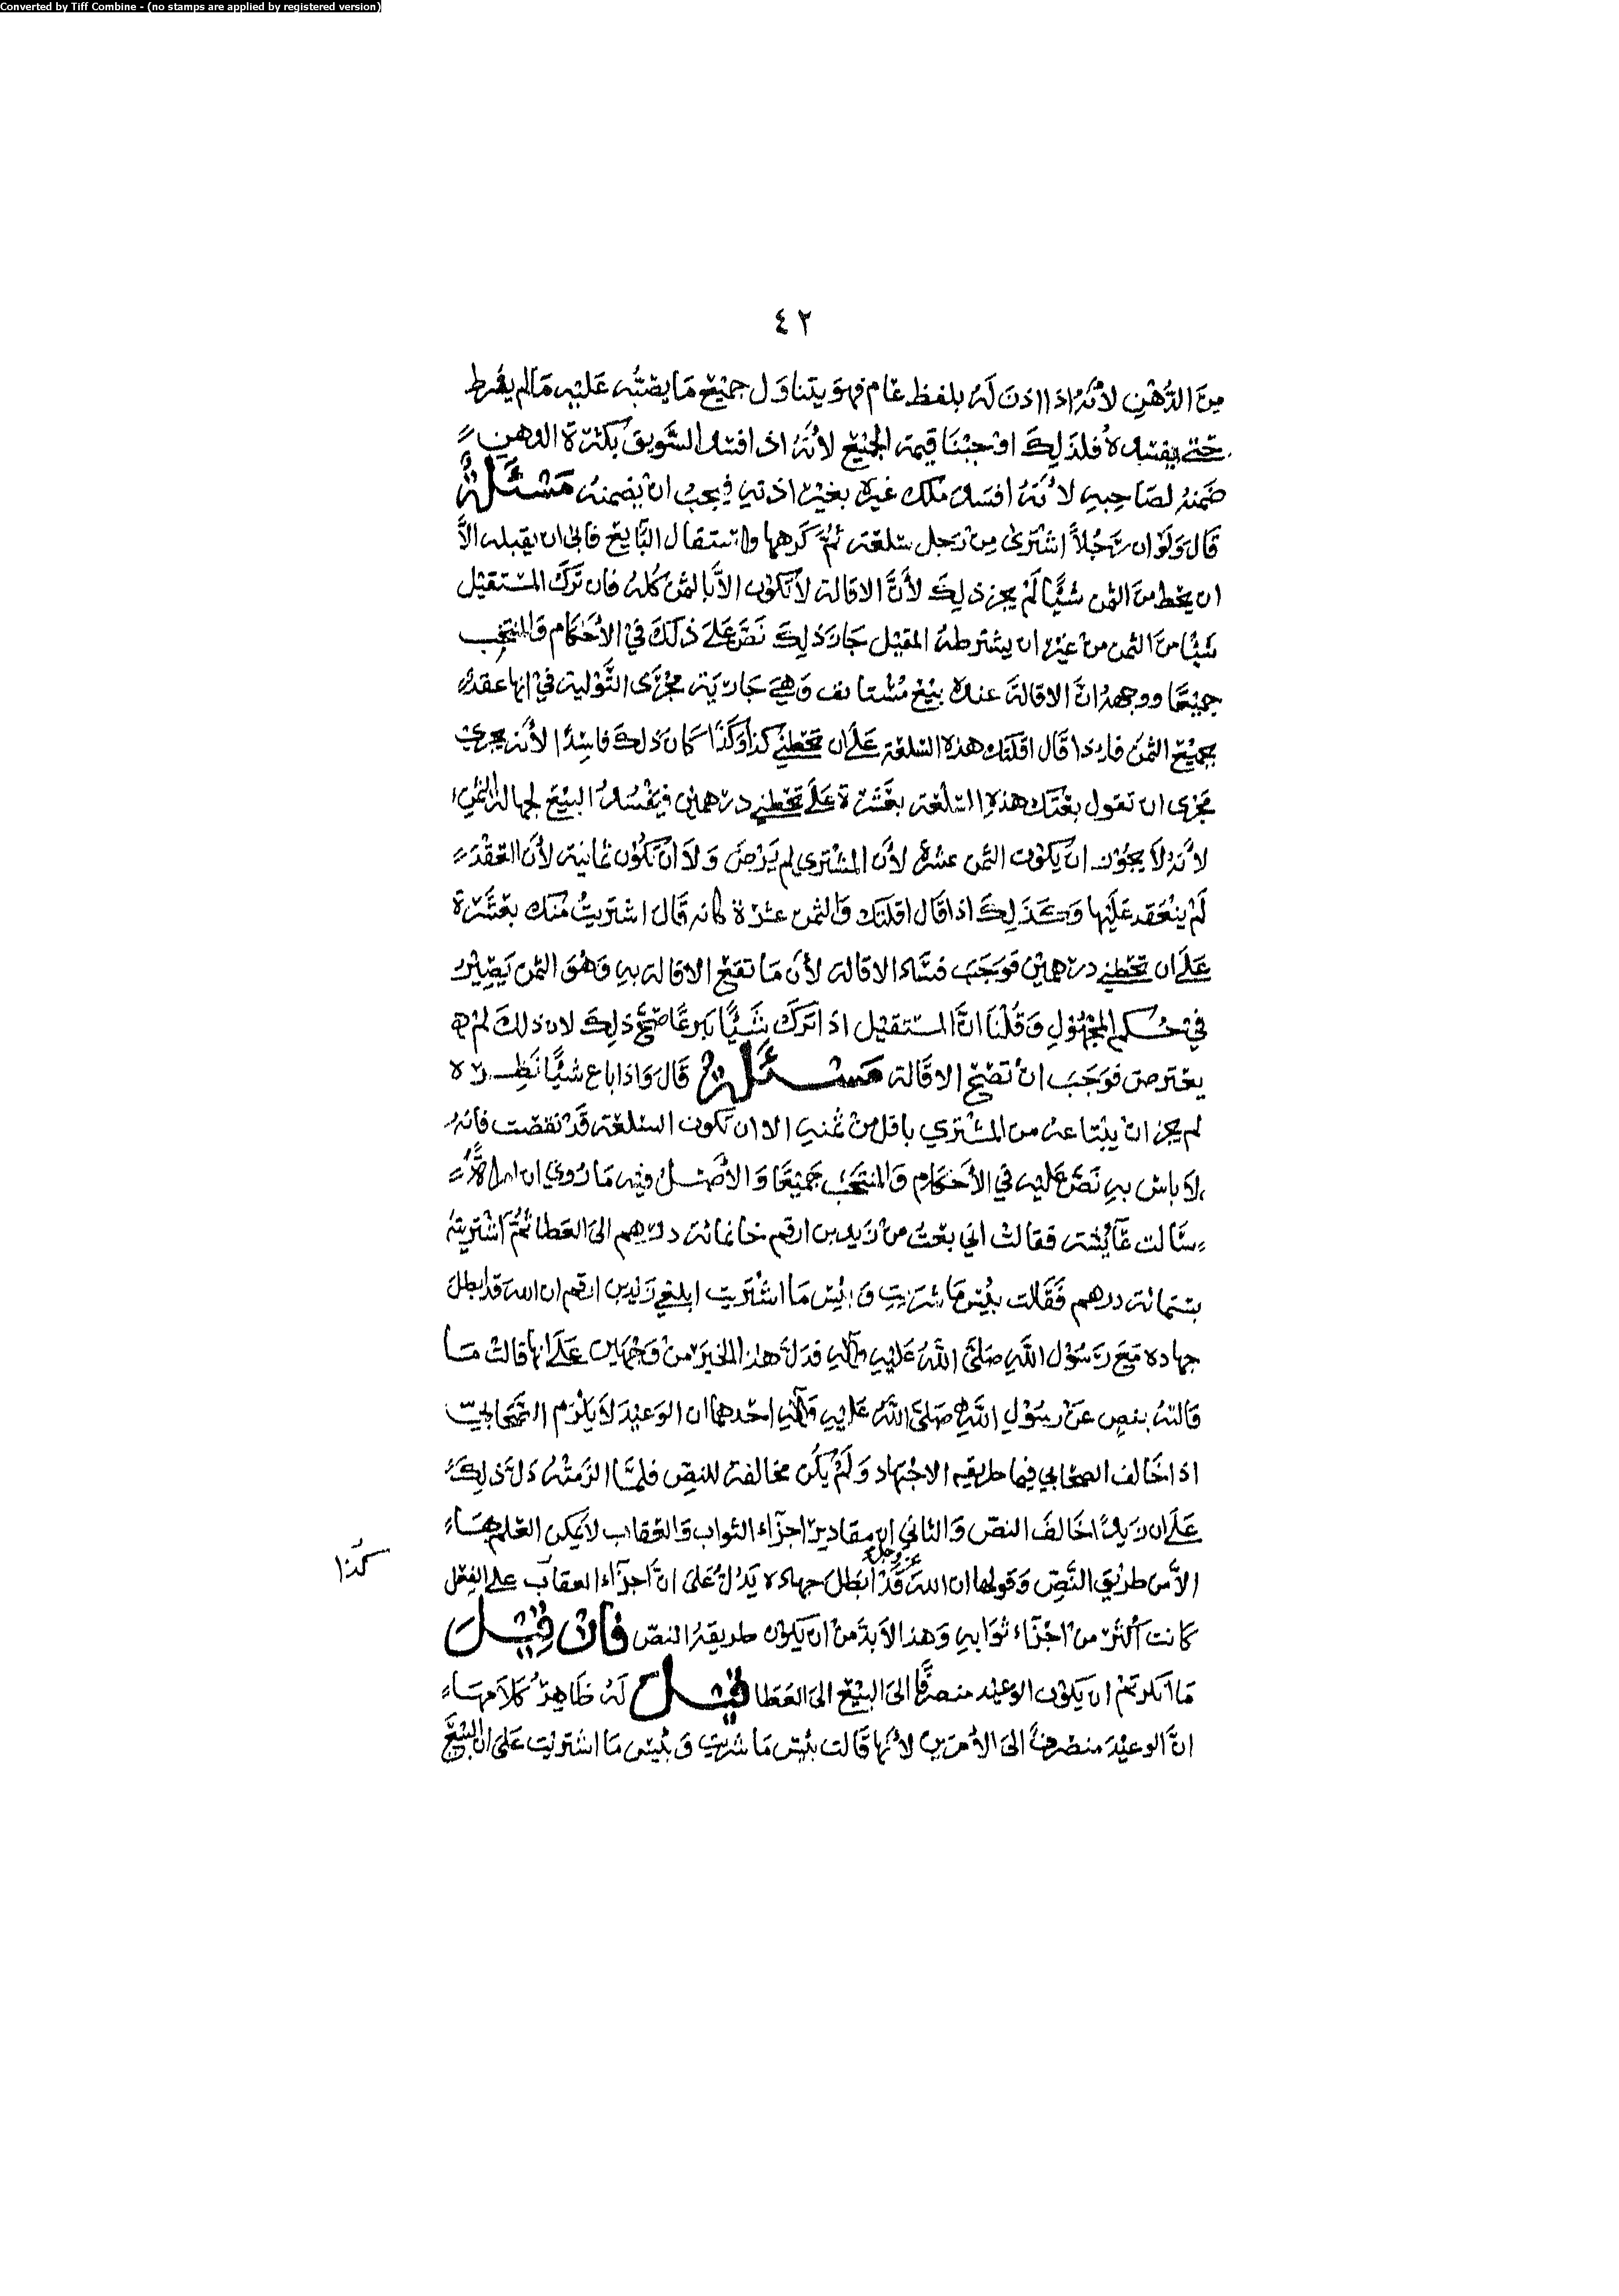 Converted by Tiff Combine - (no stamps are applied by registered version)
٤٢
مِنَ الدُّهْنِ لأنَّهُ اذا اذن لَهُ بلفظ عَام فهو يتناوَل جميْع مَا يصُبُّه عَليْهِ مَا لم يفرط
حَتى يفسده فلذلِكَ اوْجبْنَا قيمة الجميْع لأنَّهُ اذا افسد السَّويق بكثرة الدهن
ضمنهُ لصَاحِبهِ لأنَّهُ افسَد ملك غيره بغيْر اذنهِ فيجبُ انْ يضمنهُ مَسْئَلَةٌ
قَال وَلَوْ ان رَجُلاً اشْترىٰ مِنْ رَجل سلعَة ثُمَّ كَرهها واستقال البَايعَ فابىٰ ان يقيله الاَّ
ان يحُط منَ الثمن شيْئًا لَمْ يجز ذلِكَ لأنَّ الاقالة لاَ تكوْن الاَّ بالثمَن كُله فان تَركَ المسْتقيْل
شيْئًا منَ الثمن منْ غيْر ان يشترطهُ المقيْل جَازَ ذلِكَ نَصَّ عَلىٰ ذلكَ فيْ الأحْكَام وَالمنتخب
جميْعًا ووجههُ انَّ الاقالةَ عنده بيْع مُسْتانف وَهيَ جَاريَة مجْرَى التَّوْلية فيْ انها عقد
بجميْع الثمن فاذا قَال اقلتك هذه السّلعَة عَلىٰ ان تحطني كذا وَكَذا كَانَ ذلكَ فاسِدًا لأنه يجري
مجرَى ان تقول بعْتك هذهِ السّلعَة بعَشرَة عَلىٰ تحطني درْهميْن فيفسُدُ البيْعَ لجهالة الثمن
لأنَّهُ لاَ يجُوْز انْ يكوْن الثمن عشرة لأن المشترى لم يَرْضَ وَلاَ انْ تكُوْن ثمانية لأن العَقْدَ
لَمْ ينْعَقد عَليْها وَكَذلِكَ اذا قَال اقلتك وَالثمن عشرة كانه قَال اشتريتُ منك بعَشَرة
عَلىٰ ان تحطني درْهميْن فوَجَبَ فسَاد الاقالة لأن مَا تقعُ الاقالة بهِ وَهُوَ الثمن يَصِيْر
فيْ حُكم المجْهُوْلِ وَقُلْنَا انَّ المسْتقيْل اذا تركَ شَيْئًا تبرعًا صَحَّ ذلِكَ لان ذلكَ لم
يعترض فوَجَبَ انْ تصح الاقَالة مَسْئَلَةٌ قَال وَاذا باع شيْئًا نَظِرَة
لم يجز انْ يبْتاعه من المشْتري باقل منْ ثمنهِ الا ان تكون السّلعَة قَدْ نقصَت فانهُ
لاَ باس بهِ نَصَّ عَليْه فيْ الأحْكَام وَالمنتخَب جَميْعًا وَالأصْل فيْه مَا رُويَ ان امرأةً
سَألت عَآئشة فقالت اني بعْتُ منْ زَيد بن ارقم خادمًا بثمانمائة درهم الىَ العَطا ثُمَّ اشْتريتهُ
بستمائة درهم فَقَالت بئِسَ مَا شريتِ وَ بئِس مَا اشْتَريتِ ابلغي زَيْدَ بن ارقم ان اللهَ قد ابطلَ
جهاده مَعَ رَسُوْل اللّهِ صَلىَّ اللهُ عَليْهِ وآلهِ فدَلَّ هذا الخبر منْ وَجْهَيْن عَلىٰ انها قالتْ مَا
قَالتهُ بنصٍ عَنْ رسُوْلِ اللّهِ صَلىَّ اللهُ عَليْهِ وَآلهِ احدهمَا ان الوَعيْدَ لاَ يلْزَم الصَّحَابيّ
اذا خَالفَ الصحَابي فيمَا طريقه الاجْتهاد وَلَمْ يكُن مخالفة للنصّ فلمَّا الزمتْهُ دَلَّ ذلِكَ
عَلىٰ ان زَيدًا خَالفَ النصّ وَالثاني ان مقاديرَ اجزآء الثواب وَالعقاب لاَ يمكن العِلم بهَا
عزّ وجلّ
الاَّ من طريْق النَّصّ وَقولها ان اللهَ قَدْ ابطلَ جهاده يَدُلُّ عَلىٰ انَّ اجزآء العقاب علىَ الفِعْل
كذا
كانت أكثر منْ اجْزآء ثوَابهِ وَهذا لاَ بدَّ منْ ان يكوْن طريقهُ النصّ فان قيْلَ
مَا انكرتمْ ان يَكوْن الوعيْد منصرفًا الىَ البيْع الىَ العَطا قيْلَ لَهُ ظَاهِرُ كَلاَمهَا
انَّ الوعيْدَ منصرفٌ الىَ الأمْرَيْن لأنَّها قَالت بئِسَ مَا شريتِ وَبئِس مَا اشتريْتِ عَلىٰ ان البيْعَ